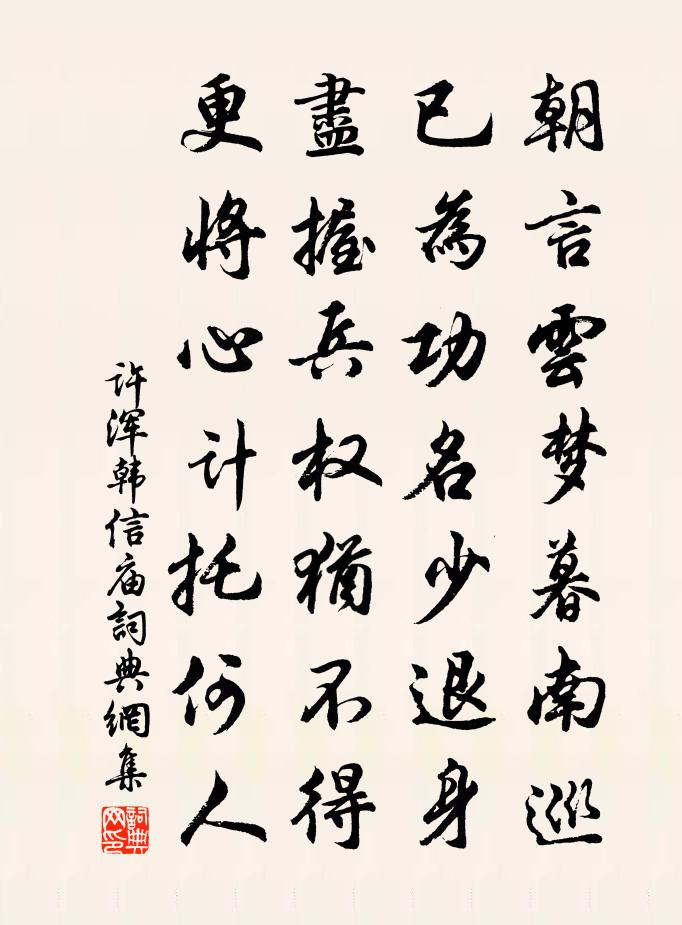 朝言雲梦暮南巡
已為功名少退身
盡握兵权猶不得
更将心计托何人
许浑韩信庙詞典網集
詞典网印